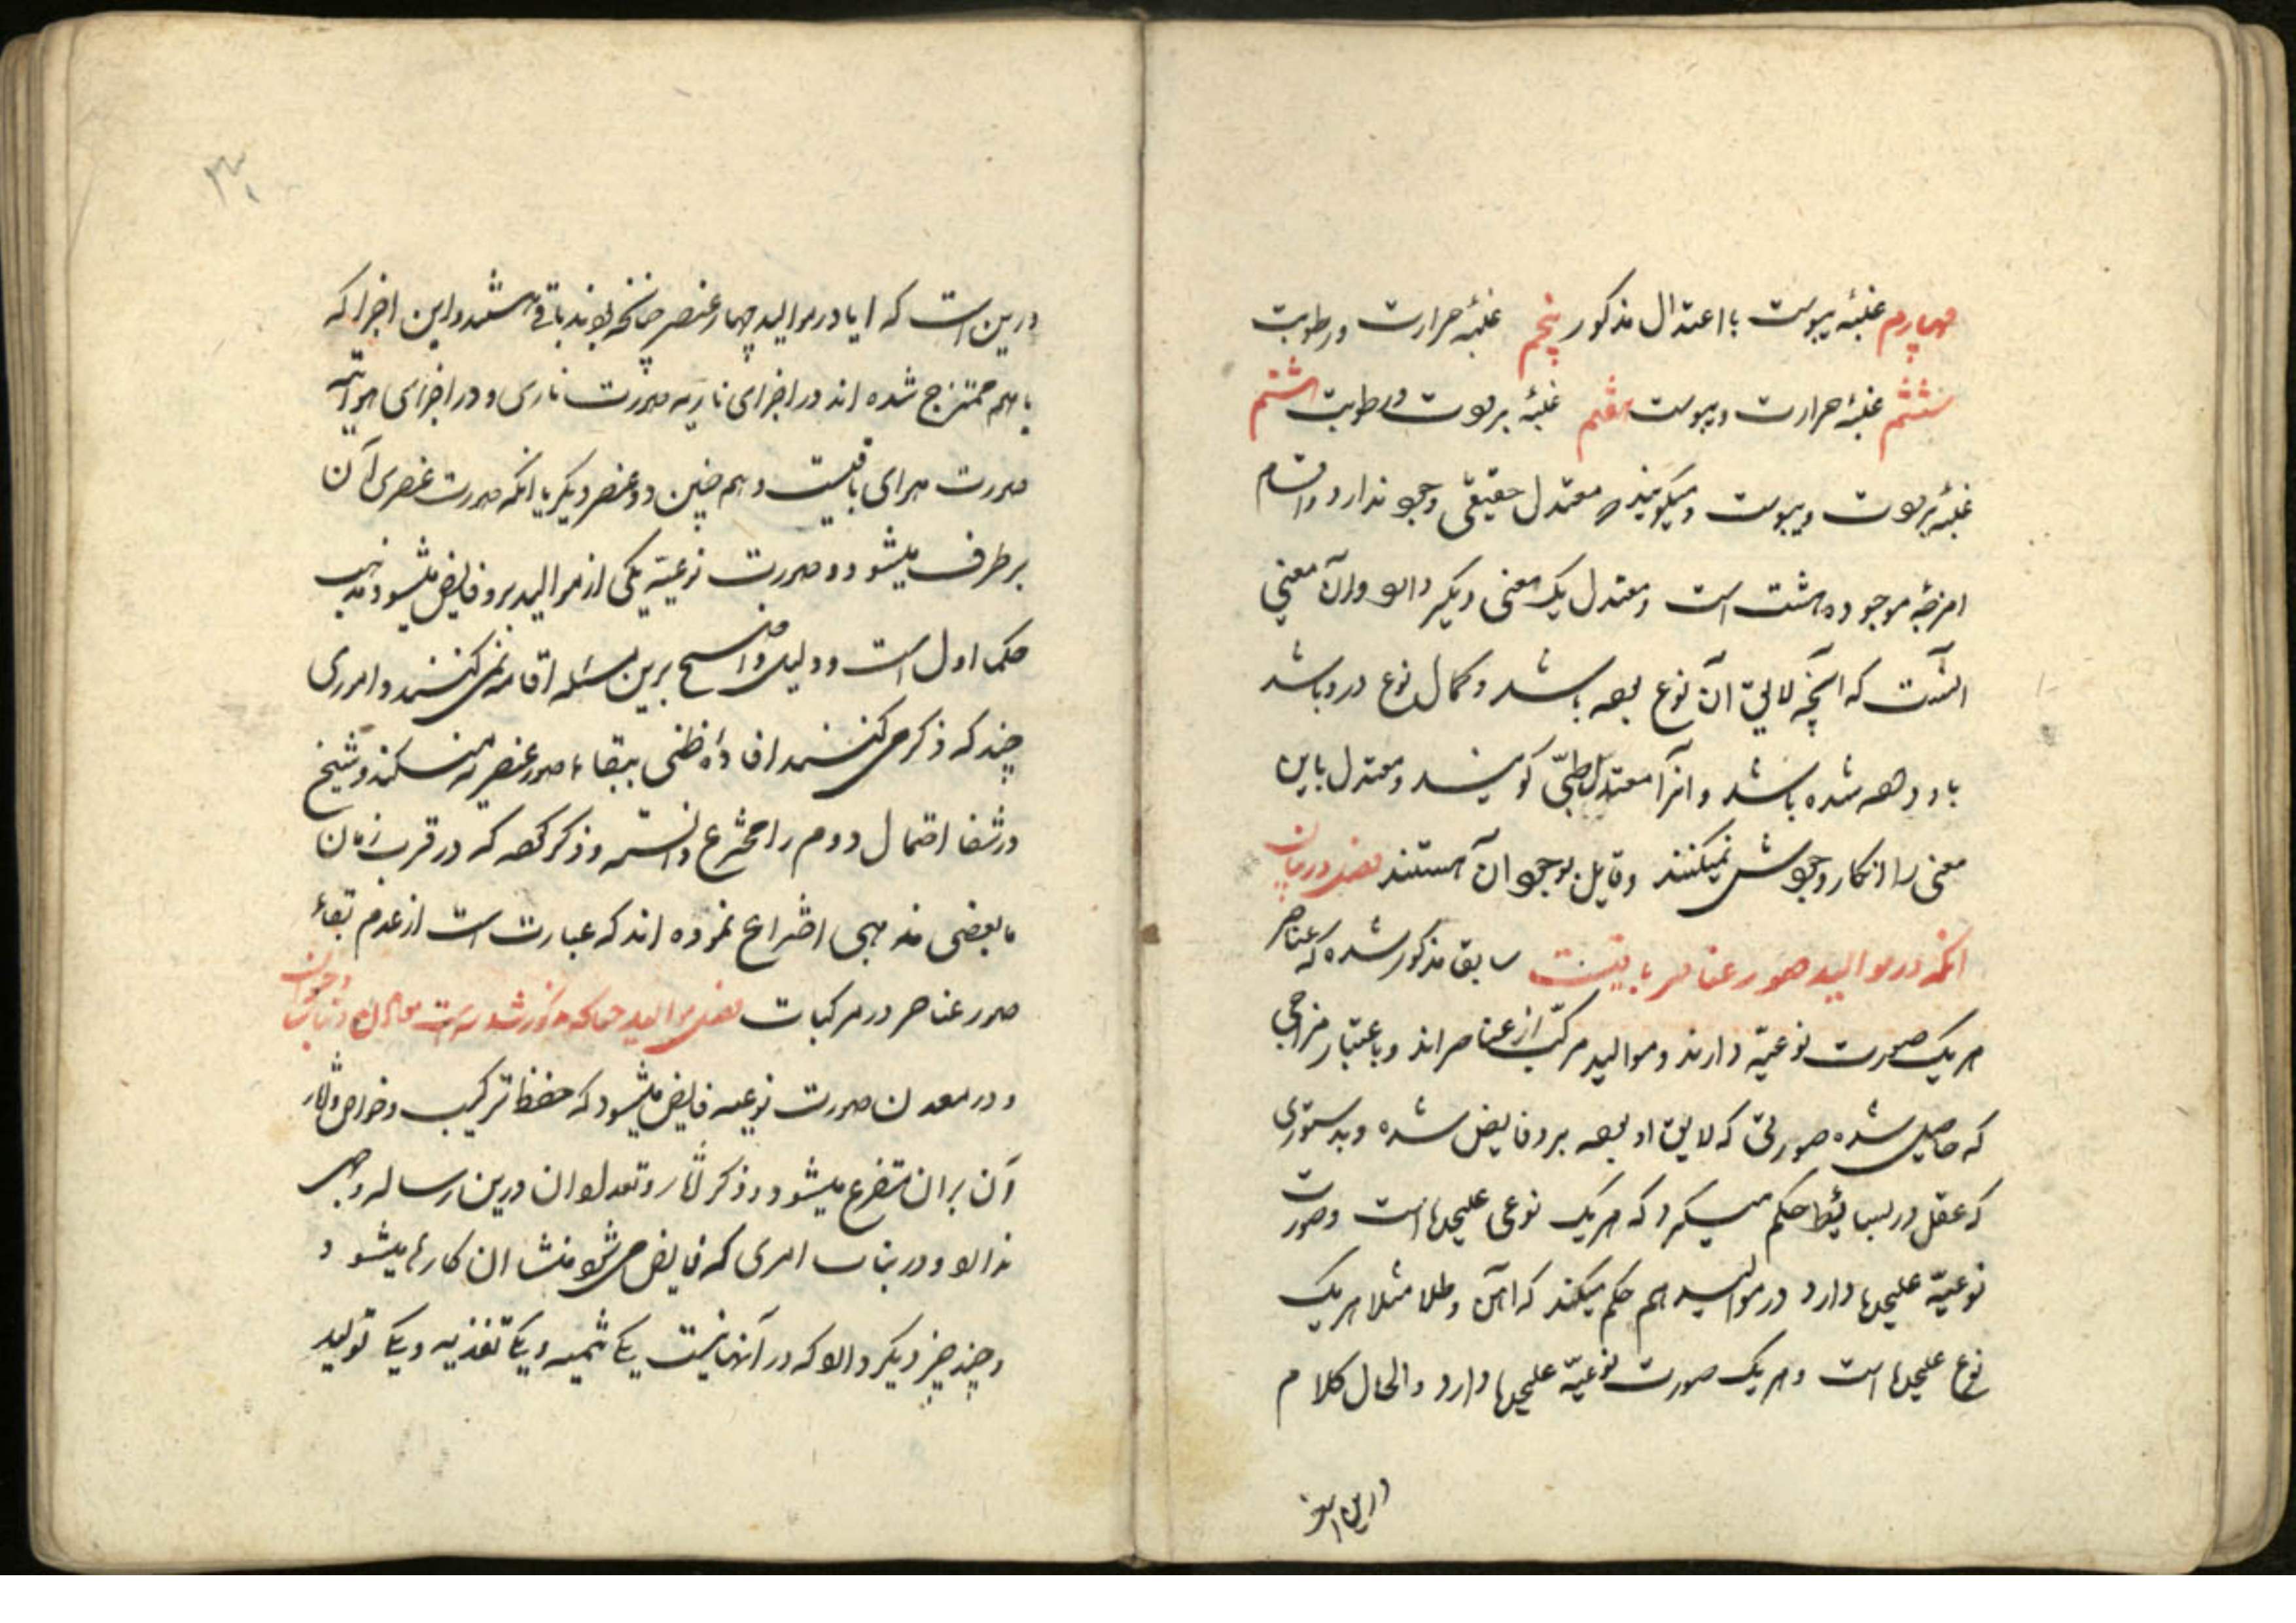 چهارم غلبهٔ یبوست با اعتدال مذکور پنجم غلبهٔ حرارت و رطوبت
ششم غلبهٔ حرارت و یبوست هفتم غلبهٔ برودت و رطوبت هشتم
غلبهٔ برودت و یبوست و میگویند که معتدل حقیقی وجود ندارد و اقسام
امزجهٔ موجوده هشت است و معتدل یک معنی دیگر دارد و آن معنی
آنست که آنچه لایق آن نوع بوده باشد و کمال نوع در و باشد
باو داده شده باشد و آنرا معتدل طبّی گویند و معتدل باین
معنی را انکار وجودش نمیکنند و قایل بوجود آن هستند فصل در بیان
آنکه در موالید صور عناصر باقیست سابق مذکور شده که عناصر
هر یک صورت نوعیّه دارند و موالید مرکّب از عناصراند و باعتبار مزاجی
که حاصل شده صورتی که لایق او بوده برو فایض شده و بدستوری
که عقل در بسایط حکم میکرد که هر یک نوعی علیحده است و صورت
نوعیّه علیحده دارد در موالید هم حکم میکند که آهن و طلا مثلا هر یک
نوع علیحده است و هر یک صورت نوعیّه علیحده دارد و الحال کلام
درین است که آیا در موالید چهار عنصر چنانچه بودند باقی هستند و این اجزا که
باهم ممتزج شده اند در اجزای ناریه صورت ناری و در اجزای هوائیه
صورت هوای باقیست و هم چنین دو عنصر دیگر یا آنکه صورت عنصری آن
برطرف میشود و صورت نوعیّه یکی از موالید برو فایض میشود مذهب
حکما اول است و دلیل واضح برین مسئله اقامه نمی کنند و اموری
چند که ذکر می کنند افادهٔ ظنی ببقاء صور عنصریه میکند و شیخ
در شفا احتمال دوم را مخترع دانسته و ذکر کرده که در قرب زمان
ما بعضی مذهبی اختراع نموده اند که عبارت است از عدم بقاء
صور عناصر در مرکبات فصل موالید چنانکه مذکور شد سه است معادن و نبات و حیوان
و در معدن صورت نوعیه فایض میشود که حفظ ترکیب و خواص و آثار
آن بر آن متفرع میشود و ذکر آثار و تعداد آن درین رساله وجهی
ندارد و در نبات امری که فایض می شود منشا آن کارها میشود و
و چند چیز دیگر دارد که در آنها نیست یکی تنمیه و یکی تغذیه و یکی تولید